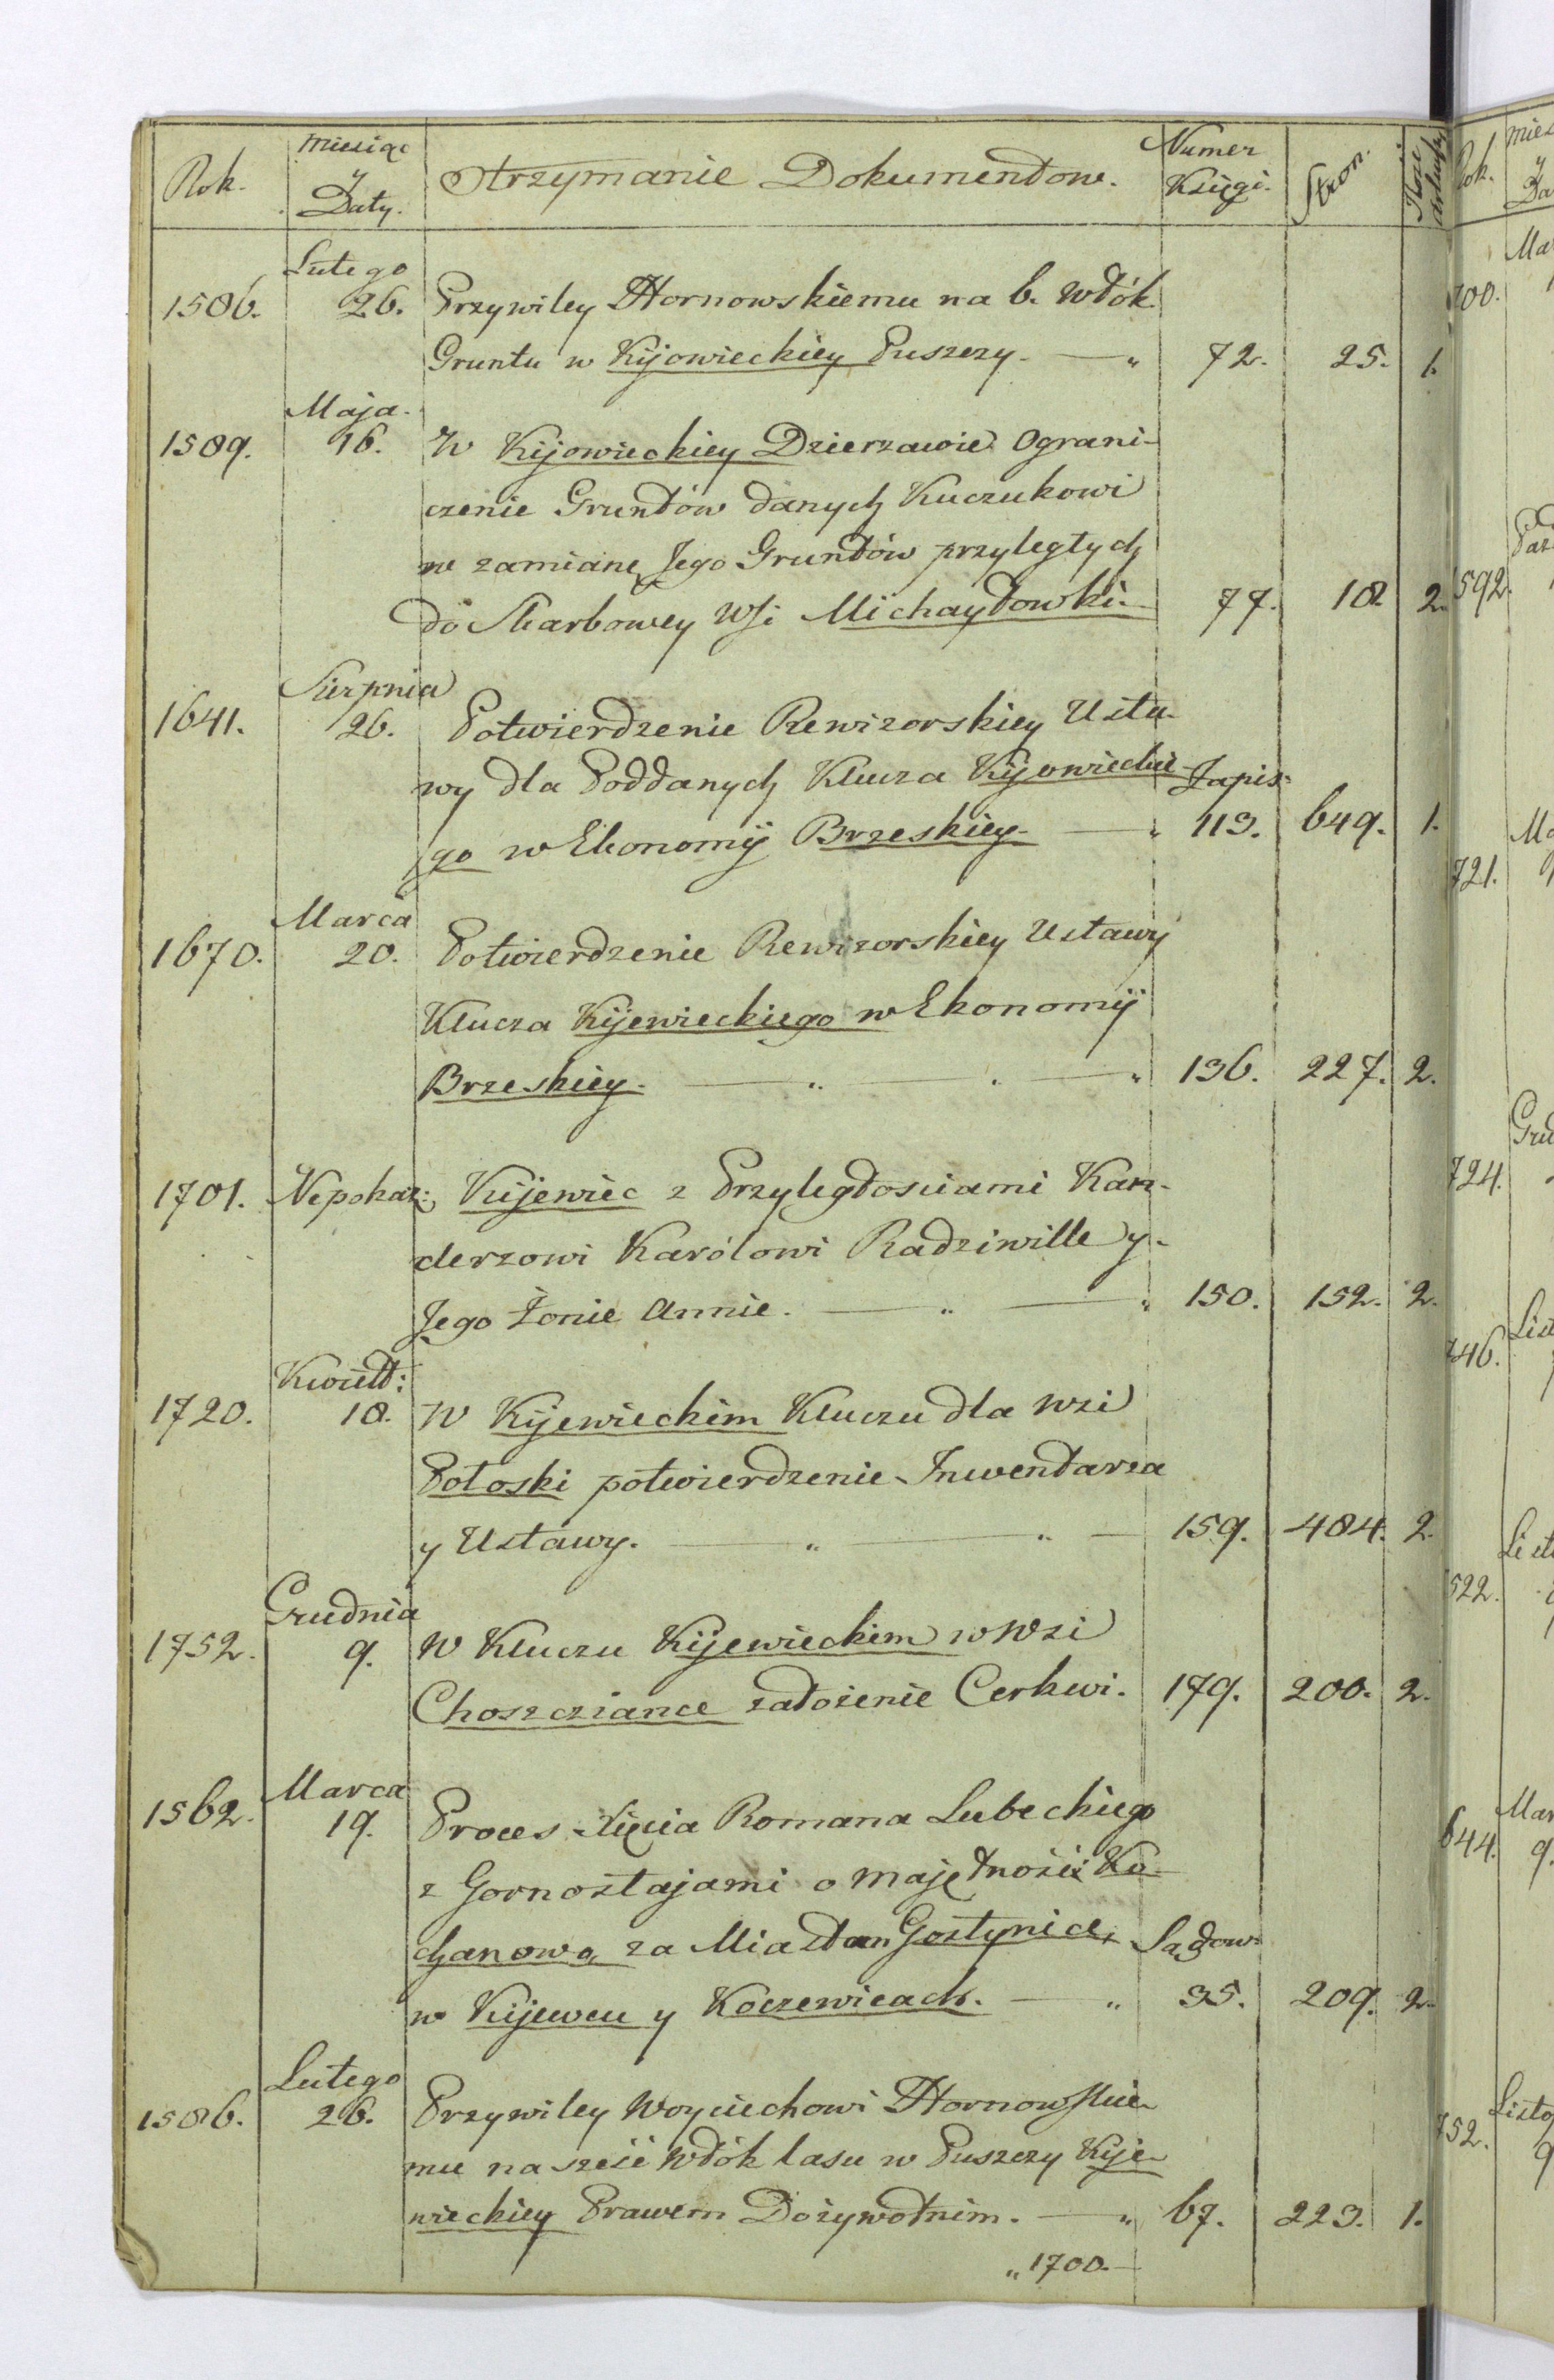 Rok. miesiąc y Daty. Otrzymanie Dokumentow. Numer Księgi. Stron. Ilość arkuszy
Lutego
1586. 26. Przywiley THornowskiemu na 6. włók
Gruntu w Kijowieckiey Puszczy. — „ 72. 25. 1.
Maja.
1589. 16. W Kijowieckiey Dzierzawie Ograni-
czenie Gruntów danych Kuczukowi
w zamianę Jego Gruntów przyległych
do Skarbowey Wsi Michayłowki. 77. 18 2.
Sierpnia
1641. 26. Potwierdzenie Rewizorskiey Usta-
wy dla Poddanych Klucza Kijowieckie- Zapis:
go w Ekonomij Brzeskiey. — „ 113. 649. 1.
Marca
1670. 20. Potwierdzenie Rewizorskiey Ustawy
Klucza Kijewieckiego w Ekonomij
Brzeskiey. — „ — „ 136. 227. 2.
1701. Nepokaz: Kijewiec z Przyległosciami Kan-
clerzowi Karólowi Radziwille y-
Jego Żonie Annie. — „ — „ 150. 152. 2.
Kwiet:
1720. 18. W Kijewieckim Kluczu dla wsi
Połoski potwierdzenie Inwentarza
y Ustawy. — „ — „ — 159. 484. 2.
Grudnia
1752. 9. W Kluczu Kijewieckim w Wsi
Choszcziance założenie Cerkwi. 179. 200. 2.
Marca
1562. 19. Proces Xięcia Romana Lubeckiego
z Gornostajami o majętność Ko-
chanowo, za Miastem Gostynice, Sądow:
w Kijewcu y Koczewicach. — „ 35. 209. 2.
Lutego
1586. 26. Przywiley Woyciechowi THornowskie-
mu na sześć włók lasu w Puszczy Kije-
wieckiey Prawem Dożywotnim. — „ 67. 223. 1.
„ 1700. —